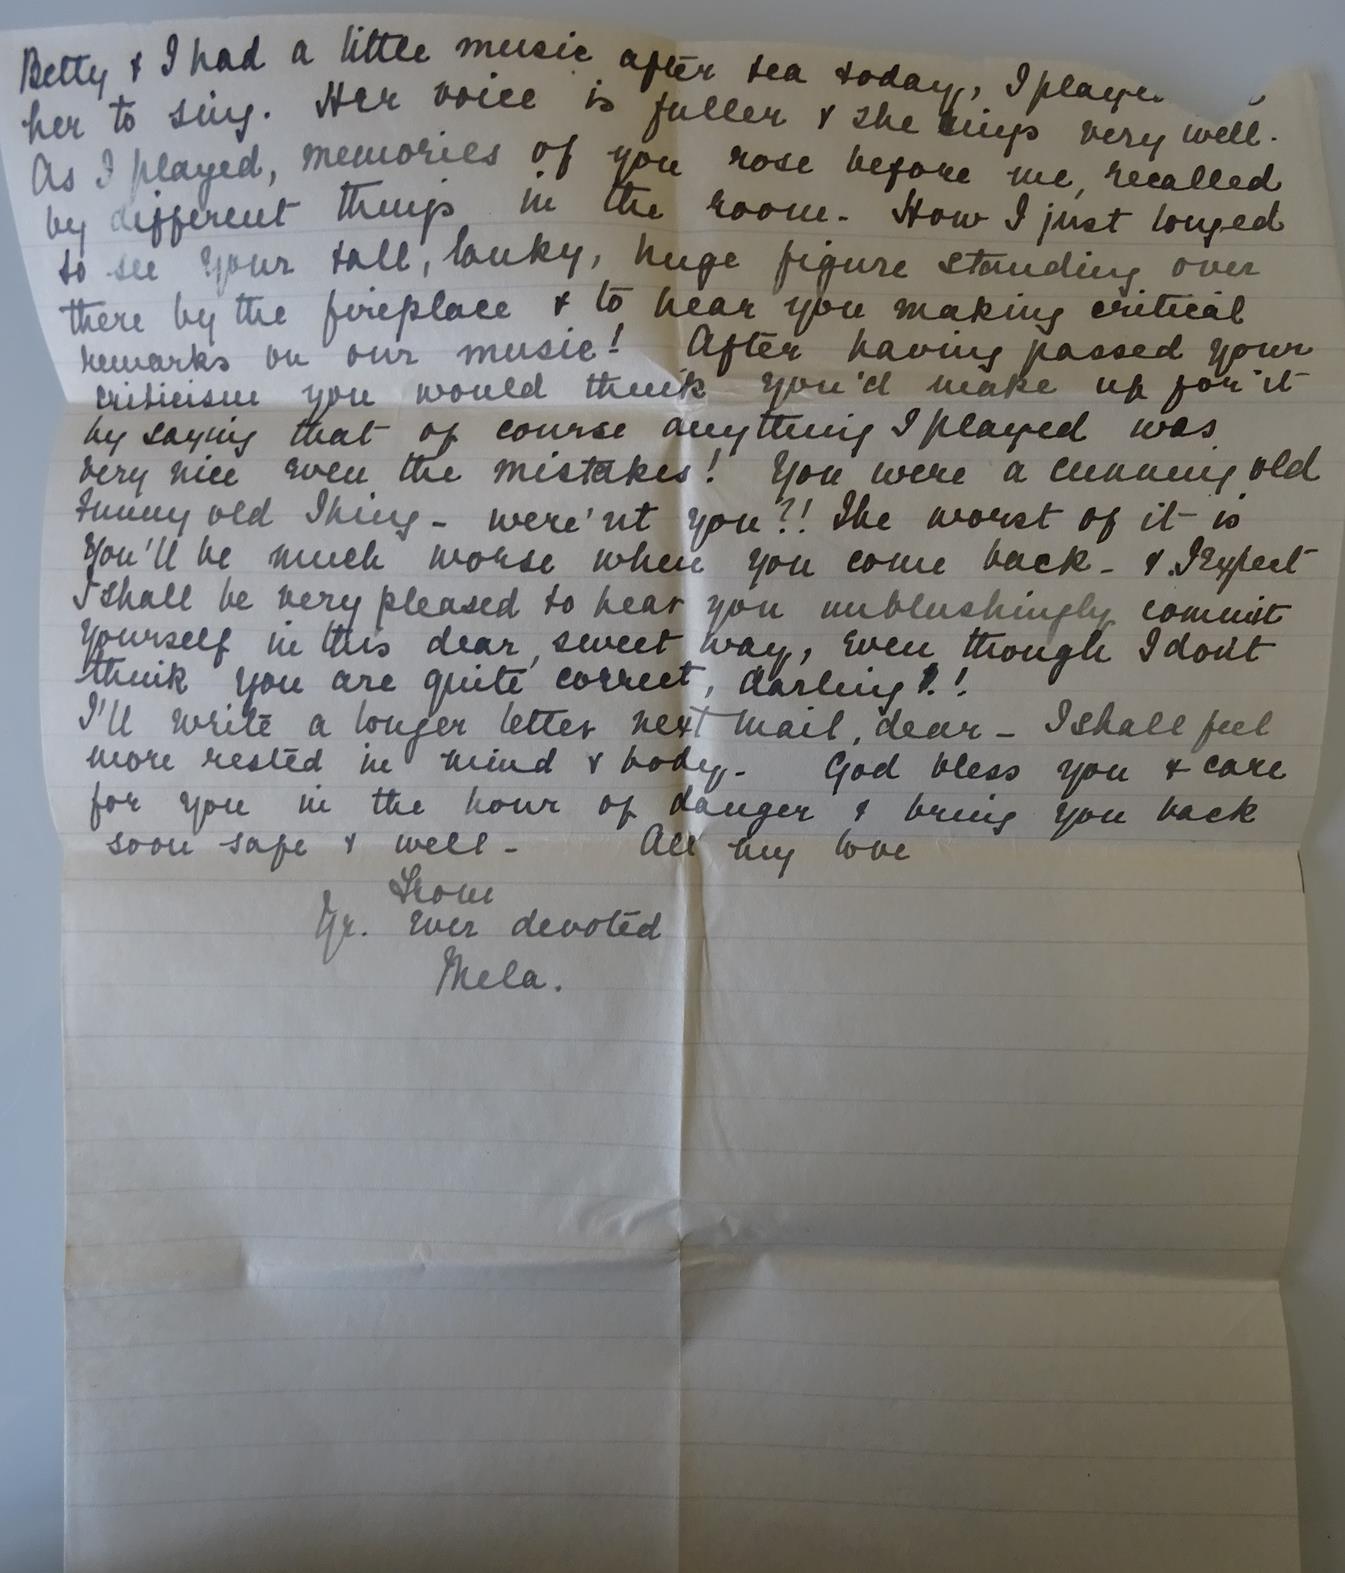 Betty & I had a little music after tea today, I played
her to sing. Her voice is fuller & she sings very well.
As I played, memories of you rose before me, recalled
by different things in the room. How I just longed
to see your tall, lanky, huge figure standing over
there by the fireplace & to hear you making critical
remarks on our music! After having passed your
criticism you would think you'd make up for it
by saying that of course anything I played was
very nice even the mistakes! You were a cunning old
funny old Thing - were'nt you?! The worst of it is
you'll be much worse when you come back - & I expect
I shall be very pleased to hear you unblushingly commit
yourself in this dear, sweet way, even though I don't
think you are quite correct, darling?!
I'll write a longer letter next mail, dear - I shall feel
more rested in mind & body. God bless you & care
for you in the hour of danger & bring you back
soon safe & well - All my love
From
Yr. Ever devoted
Mela.